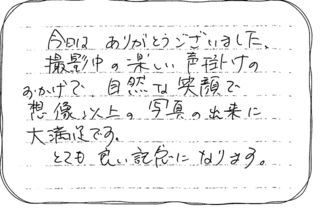 今回は ありがとうございました。
撮影中の楽しい声掛けの
おかげで、自然な笑顔で
想像以上の写真の出来に
大満足です。
とても良い記念になります。